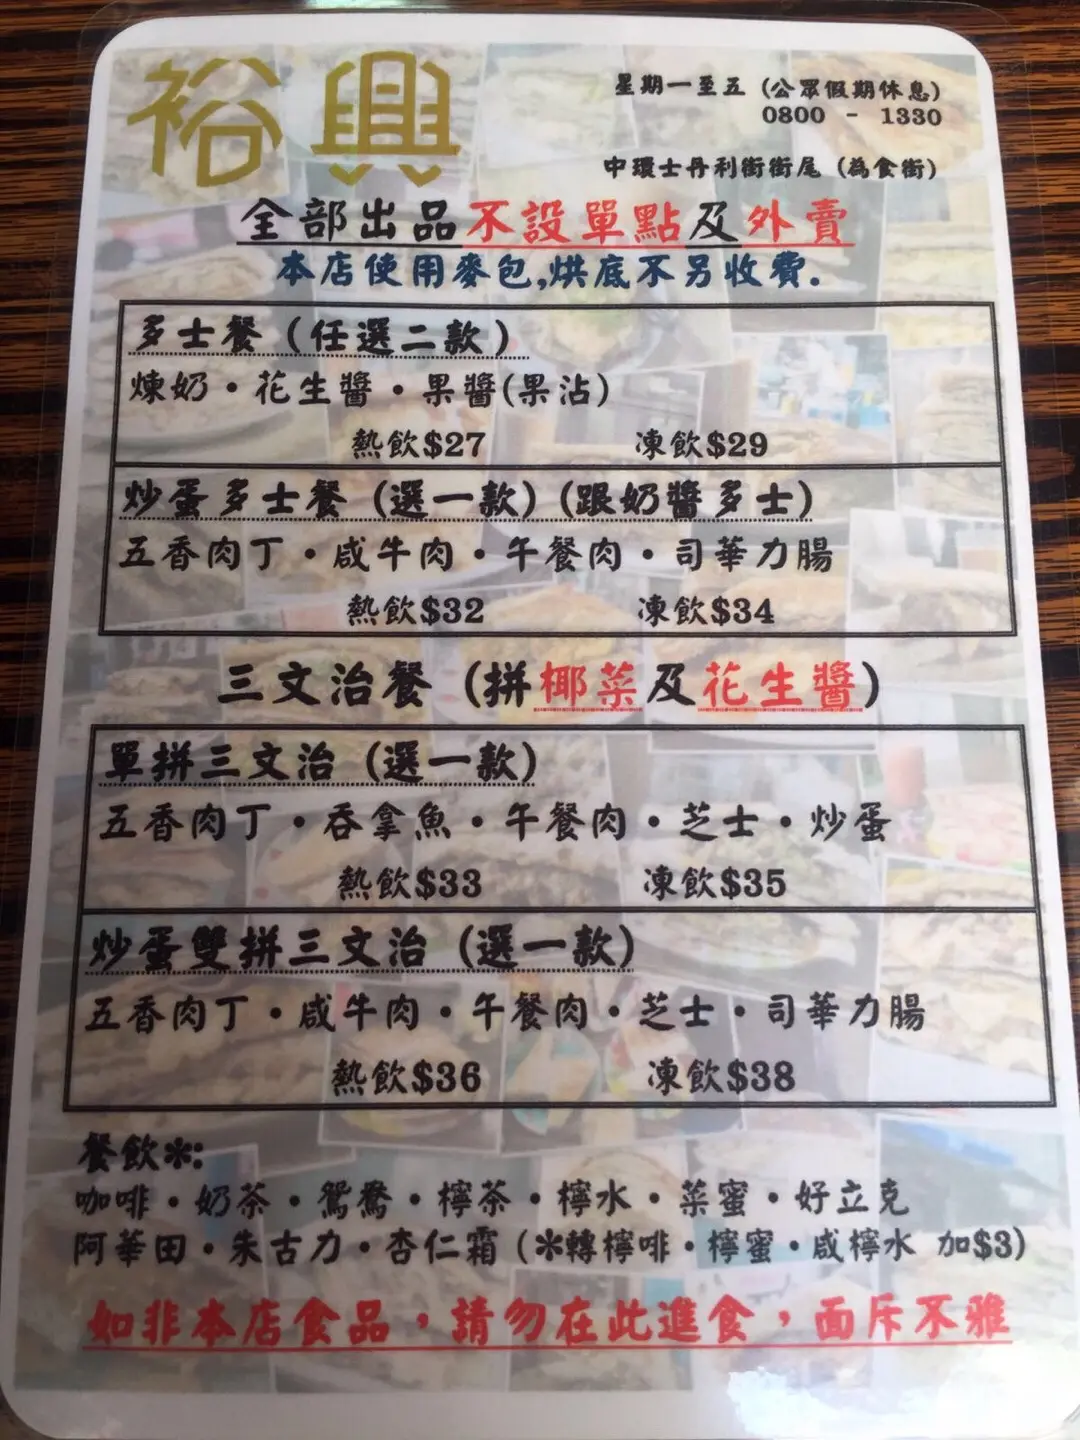 裕興
星期一至五 (公眾假期休息)
0800 - 1330
中環士丹利街街尾 (為食街)
全部出品不設單點及外賣
本店使用麥包,烘底不另收費.
多士餐 (任選二款)
煉奶·花生醬·果醬(果沾)
熱飲$27 凍飲$29
炒蛋多士餐 (選一款) (跟奶醬多士)
五香肉丁·咸牛肉·午餐肉·司華力腸
熱飲$32 凍飲$34
三文治餐 (拼椰菜及花生醬)
單拼三文治 (選一款)
五香肉丁·吞拿魚·午餐肉·芝士·炒蛋
熱飲$33 凍飲$35
炒蛋雙拼三文治 (選一款)
五香肉丁·咸牛肉·午餐肉·芝士·司華力腸
熱飲$36 凍飲$38
餐飲✻:
咖啡·奶茶·鴛鴦·檸茶·檸水·菜蜜·好立克
阿華田·朱古力·杏仁霜 (✻轉檸啡·檸蜜·咸檸水 加$3)
如非本店食品，請勿在此進食，面斥不雅